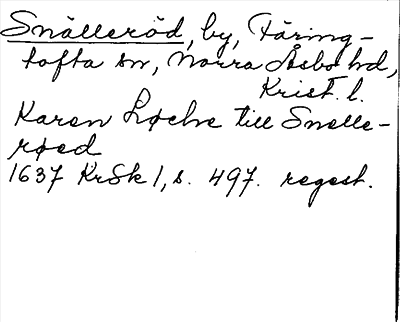 Snälleröd, by, Färing-
tofta sn, Norra Åsbo hd,
Krist. l.
Karen Løche till Snelle-
røed
1637 KrSk 1, s. 497. regest.